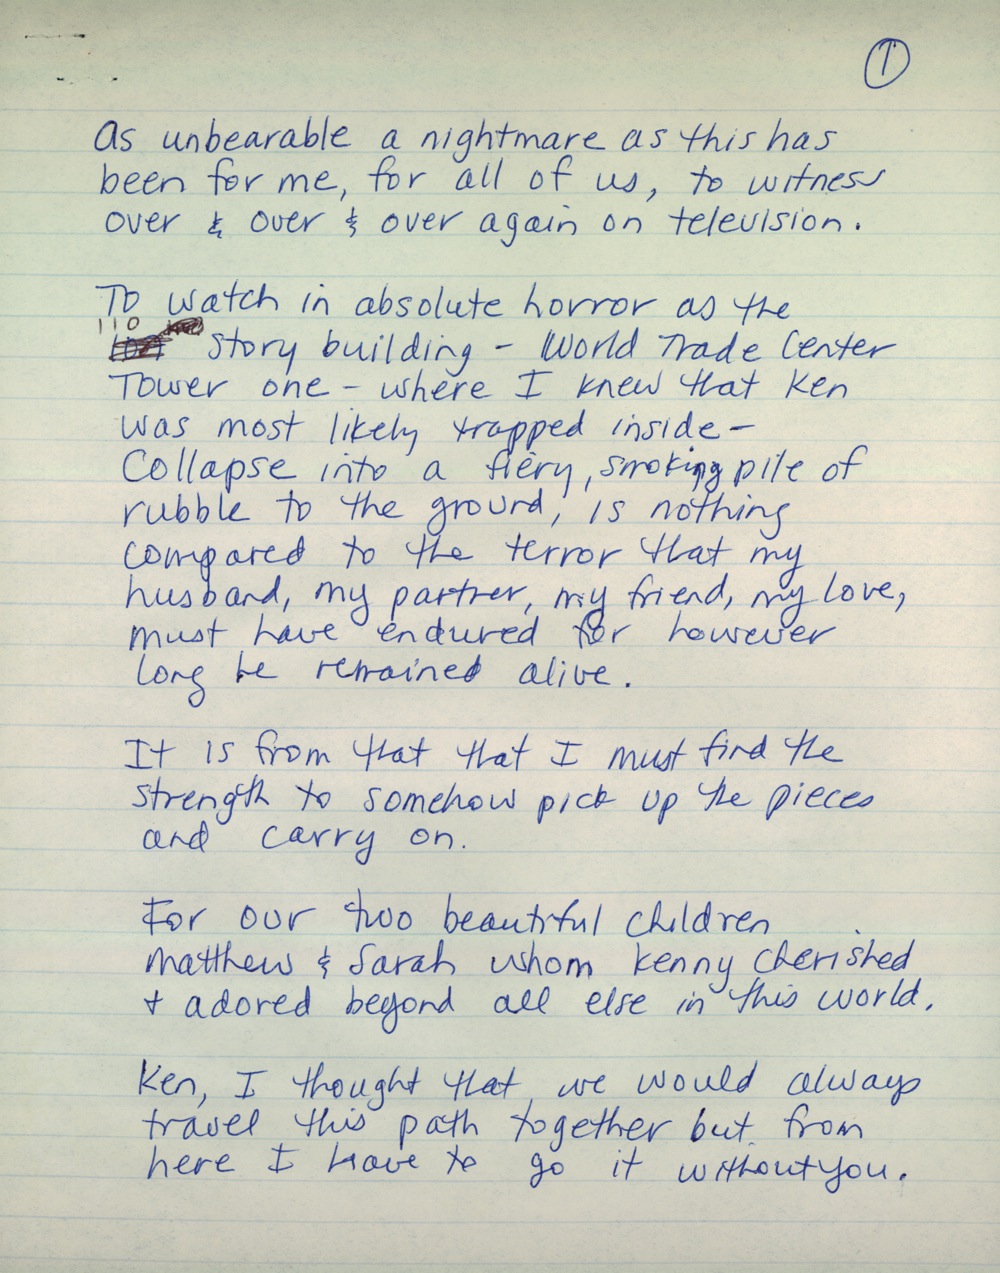 1
As unbearable a nightmare as this has
been for me, for all of us, to witness
over & over & over again on television.
To watch in absolute horror as the
110
story building - World Trade Center
Tower one - where I knew that Ken
was most likely trapped inside -
Collapse into a fiery, smoking pile of
rubble to the ground, is nothing
compared to the terror that my
husband, my partner, my friend, my love,
must have endured for however
long he remained alive.
It is from that that I must find the
strength to somehow pick up the pieces
and carry on.
For our two beautiful children
Matthew & Sarah whom Kenny cherished
+ adored beyond all else in this world.
Ken, I thought that we would always
travel this path together but from
here I have to go it without you.